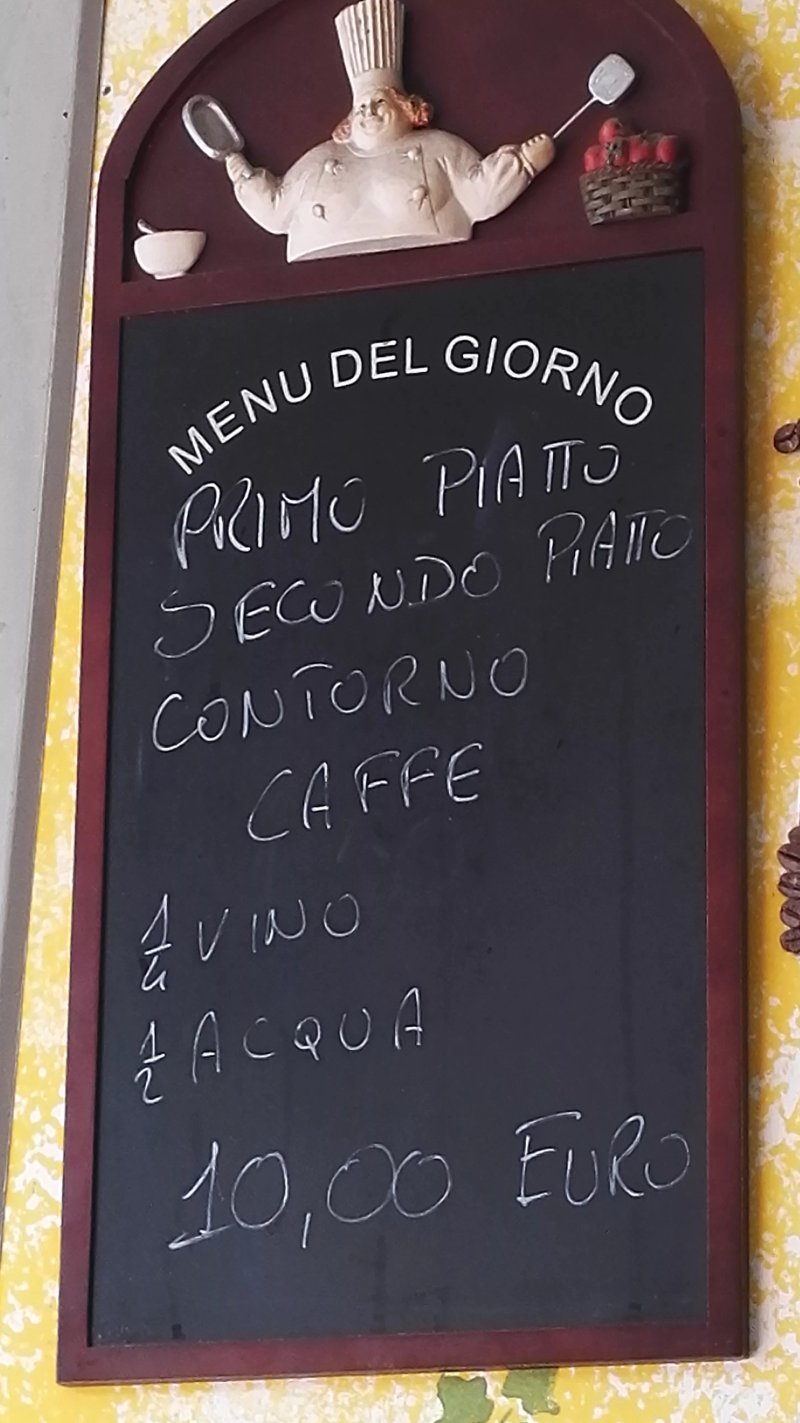 MENU DEL GIORNO
PRIMO PIATTO
SECONDO PIATTO
CONTORNO
CAFFE
1/4 VINO
1/2 ACQUA
10,00 EURO